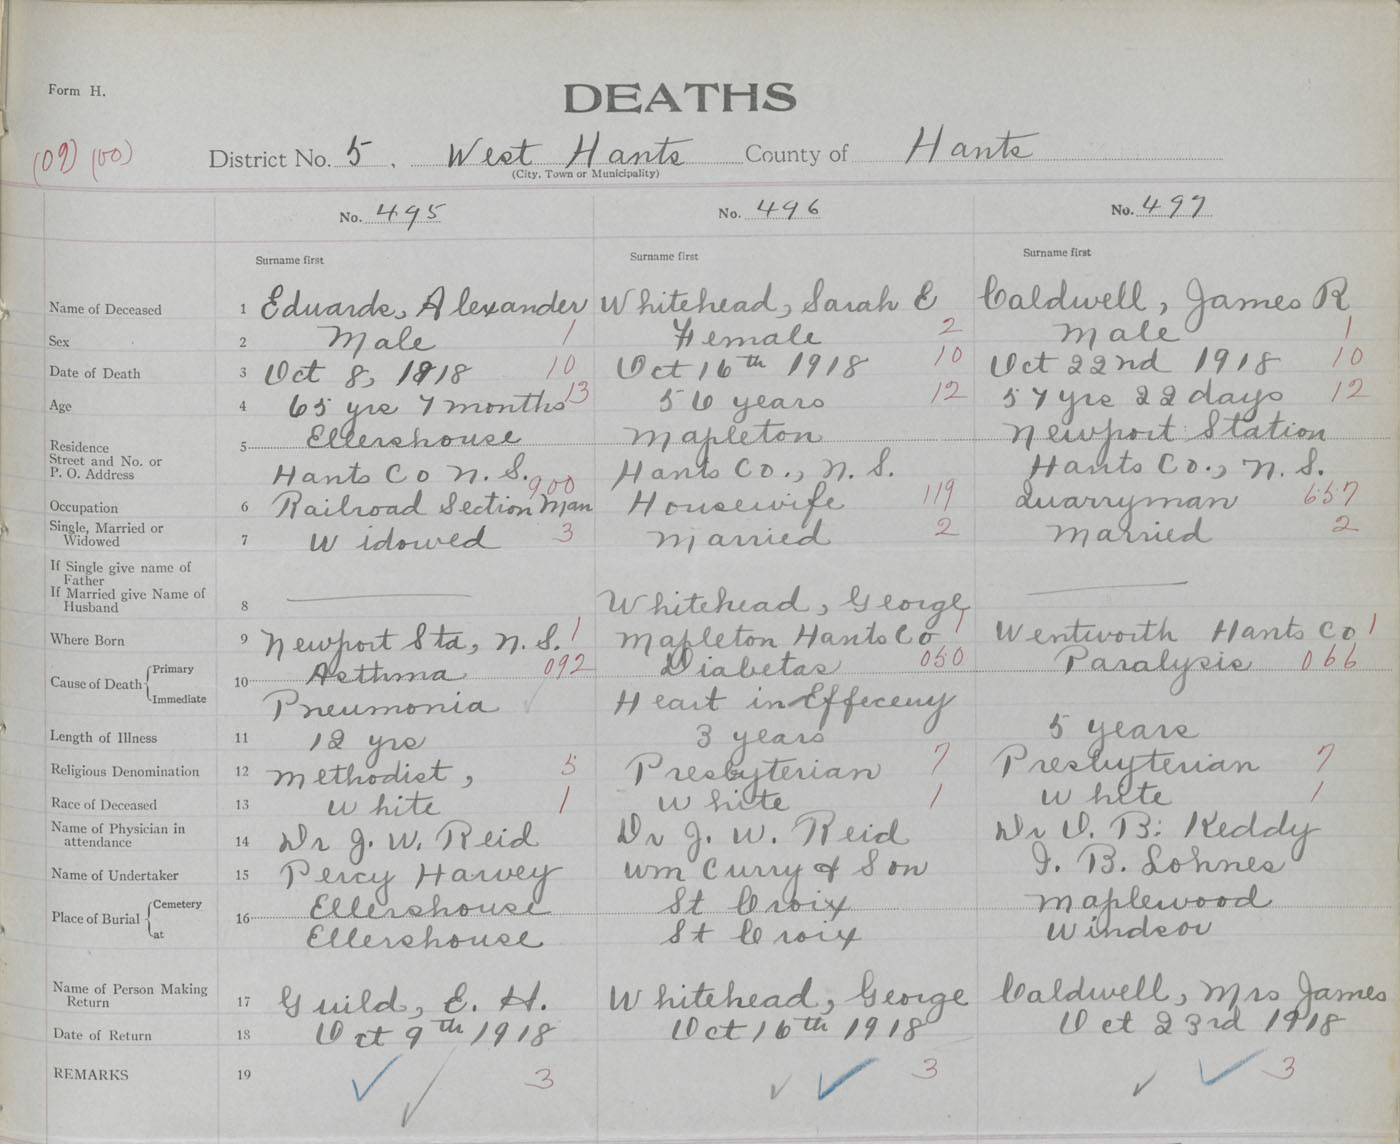 Form H.
DEATHS
(09) (00)
District No. 5. West Hants County of Hants
(City, Town or Municipality)
No. 495 No. 496 No. 497
Surname first Surname first Surname first
Name of Deceased 1 Eduards, Alexander Whitehead, Sarah E Caldwell, James R
Sex 2 Male 1 Female 2 Male 1
Date of Death 3 Oct 8, 1918 10 Oct 16th 1918 10 Oct 22nd 1918 10
Age 4 65 yrs 7 months 13 56 years 12 57 yrs 22 days 12
Residence 5 Ellershouse Mapleton Newport Station
Street and No. or
P. O. Address Hants Co N. S. Hants Co., N. S. Hants Co., N. S.
Occupation 6 Railroad Section Man 900 Housewife 119 Quarryman 657
Single, Married or
Widowed 7 Widowed 3 Married 2 Married 2
If Single give name of
Father
If Married give Name of
Husband 8 Whitehead, George
Where Born 9 Newport Sta, N. S. 1 Mapleton Hants Co 1 Wentworth Hants Co 1
Cause of Death Primary 10 Asthma 092 Diabetas 050 Paralysis 066
Immediate Pneumonia Heart in Effeceny
Length of Illness 11 12 yrs 3 years 5 years
Religious Denomination 12 Methodist, 5 Presbyterian 7 Presbyterian 7
Race of Deceased 13 White 1 White 1 White 1
Name of Physician in
attendance 14 Dr J. W. Reid Dr J. W. Reid Dr O. B. Keddy
Name of Undertaker 15 Percy Harvey Wm Curry & Son I. B. Lohnes
Place of Burial Cemetery 16 Ellershouse St Croix Maplewood
at Ellershouse St Croix Windsor
Name of Person Making
Return 17 Guild, E. H. Whitehead, George Caldwell, Mrs James
Date of Return 18 Oct 9th 1918 Oct 16th 1918 Oct 23rd 1918
REMARKS 19 3 3 3